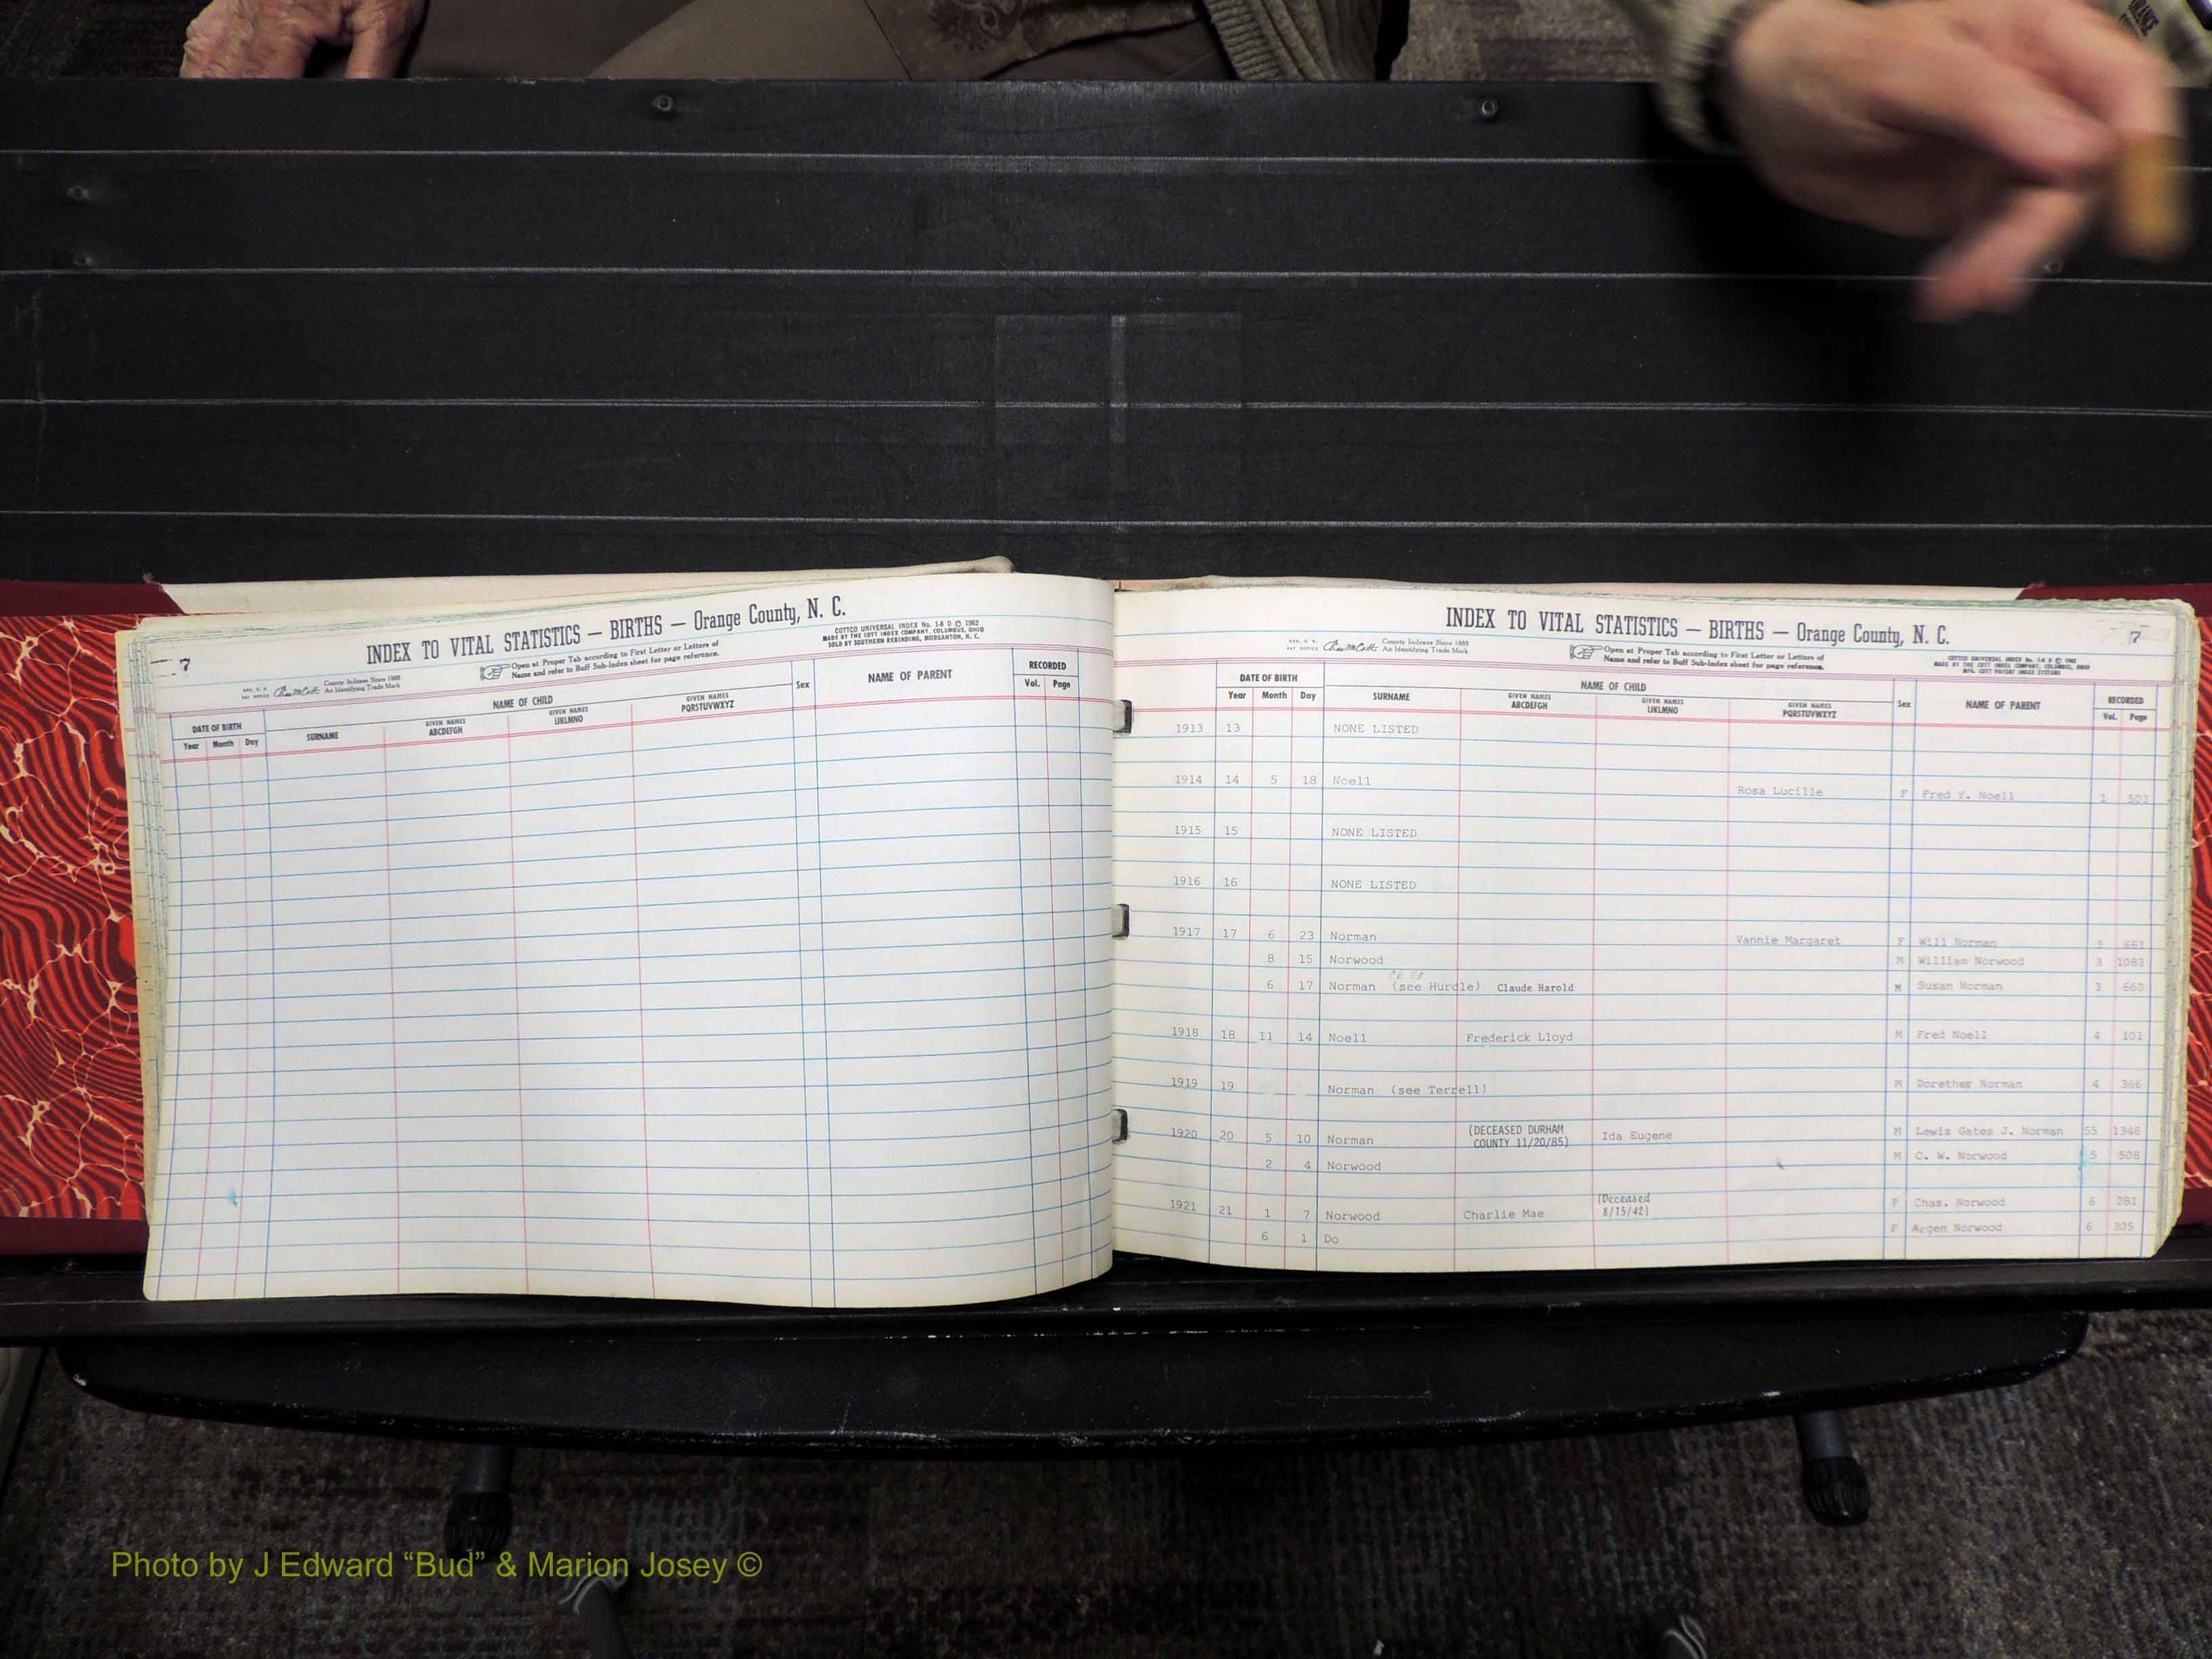 7
INDEX TO VITAL STATISTICS — BIRTHS — Orange County, N. C.
COTTCO UNIVERSAL INDEX No. 1-8 D © 1962
MADE BY THE COTT INDEX COMPANY, COLUMBUS, OHIO
SOLD BY SOUTHERN REBINDING, MORGANTON, N. C.
County Indexes Since 1888
An Identifying Trade Mark
Open at Proper Tab according to First Letter or Letters of
Name and refer to Buff Sub-Index sheet for page reference.
DATE OF BIRTH NAME OF CHILD Sex NAME OF PARENT RECORDED
Year Month Day SURNAME GIVEN NAMES ABCDEFGH GIVEN NAMES IJKLMNO GIVEN NAMES PQRSTUVWXYZ Vol. Page
INDEX TO VITAL STATISTICS — BIRTHS — Orange County, N. C.
7
County Indexes Since 1888
An Identifying Trade Mark
Open at Proper Tab according to First Letter or Letters of
Name and refer to Buff Sub-Index sheet for page reference.
DATE OF BIRTH NAME OF CHILD Sex NAME OF PARENT RECORDED
Year Month Day SURNAME GIVEN NAMES ABCDEFGH GIVEN NAMES IJKLMNO GIVEN NAMES PQRSTUVWXYZ Vol. Page
1913 13 NONE LISTED
1914 14 5 18 Noell Rosa Lucille F Fred Y. Noell 1 503
1915 15 NONE LISTED
1916 16 NONE LISTED
1917 17 6 23 Norman Vannie Margaret F Will Norman 3 661
8 15 Norwood M William Norwood 3 1083
6 17 Norman (see Hurdle) Claude Harold M Susan Norman 3 660
1918 18 11 14 Noell Frederick Lloyd M Fred Noell 4 101
1919 19 Norman (see Terrell) M Dorether Norman 4 366
1920 20 5 10 Norman (DECEASED DURHAM COUNTY 11/20/85) Ida Eugene M Lewis Gates J. Norman 55 1346
2 4 Norwood M C. W. Norwood 5 508
1921 21 1 7 Norwood Charlie Mae (Deceased 8/15/42) F Chas. Norwood 6 281
6 1 Do F Argen Norwood 6 305
Photo by J Edward “Bud” & Marion Josey ©